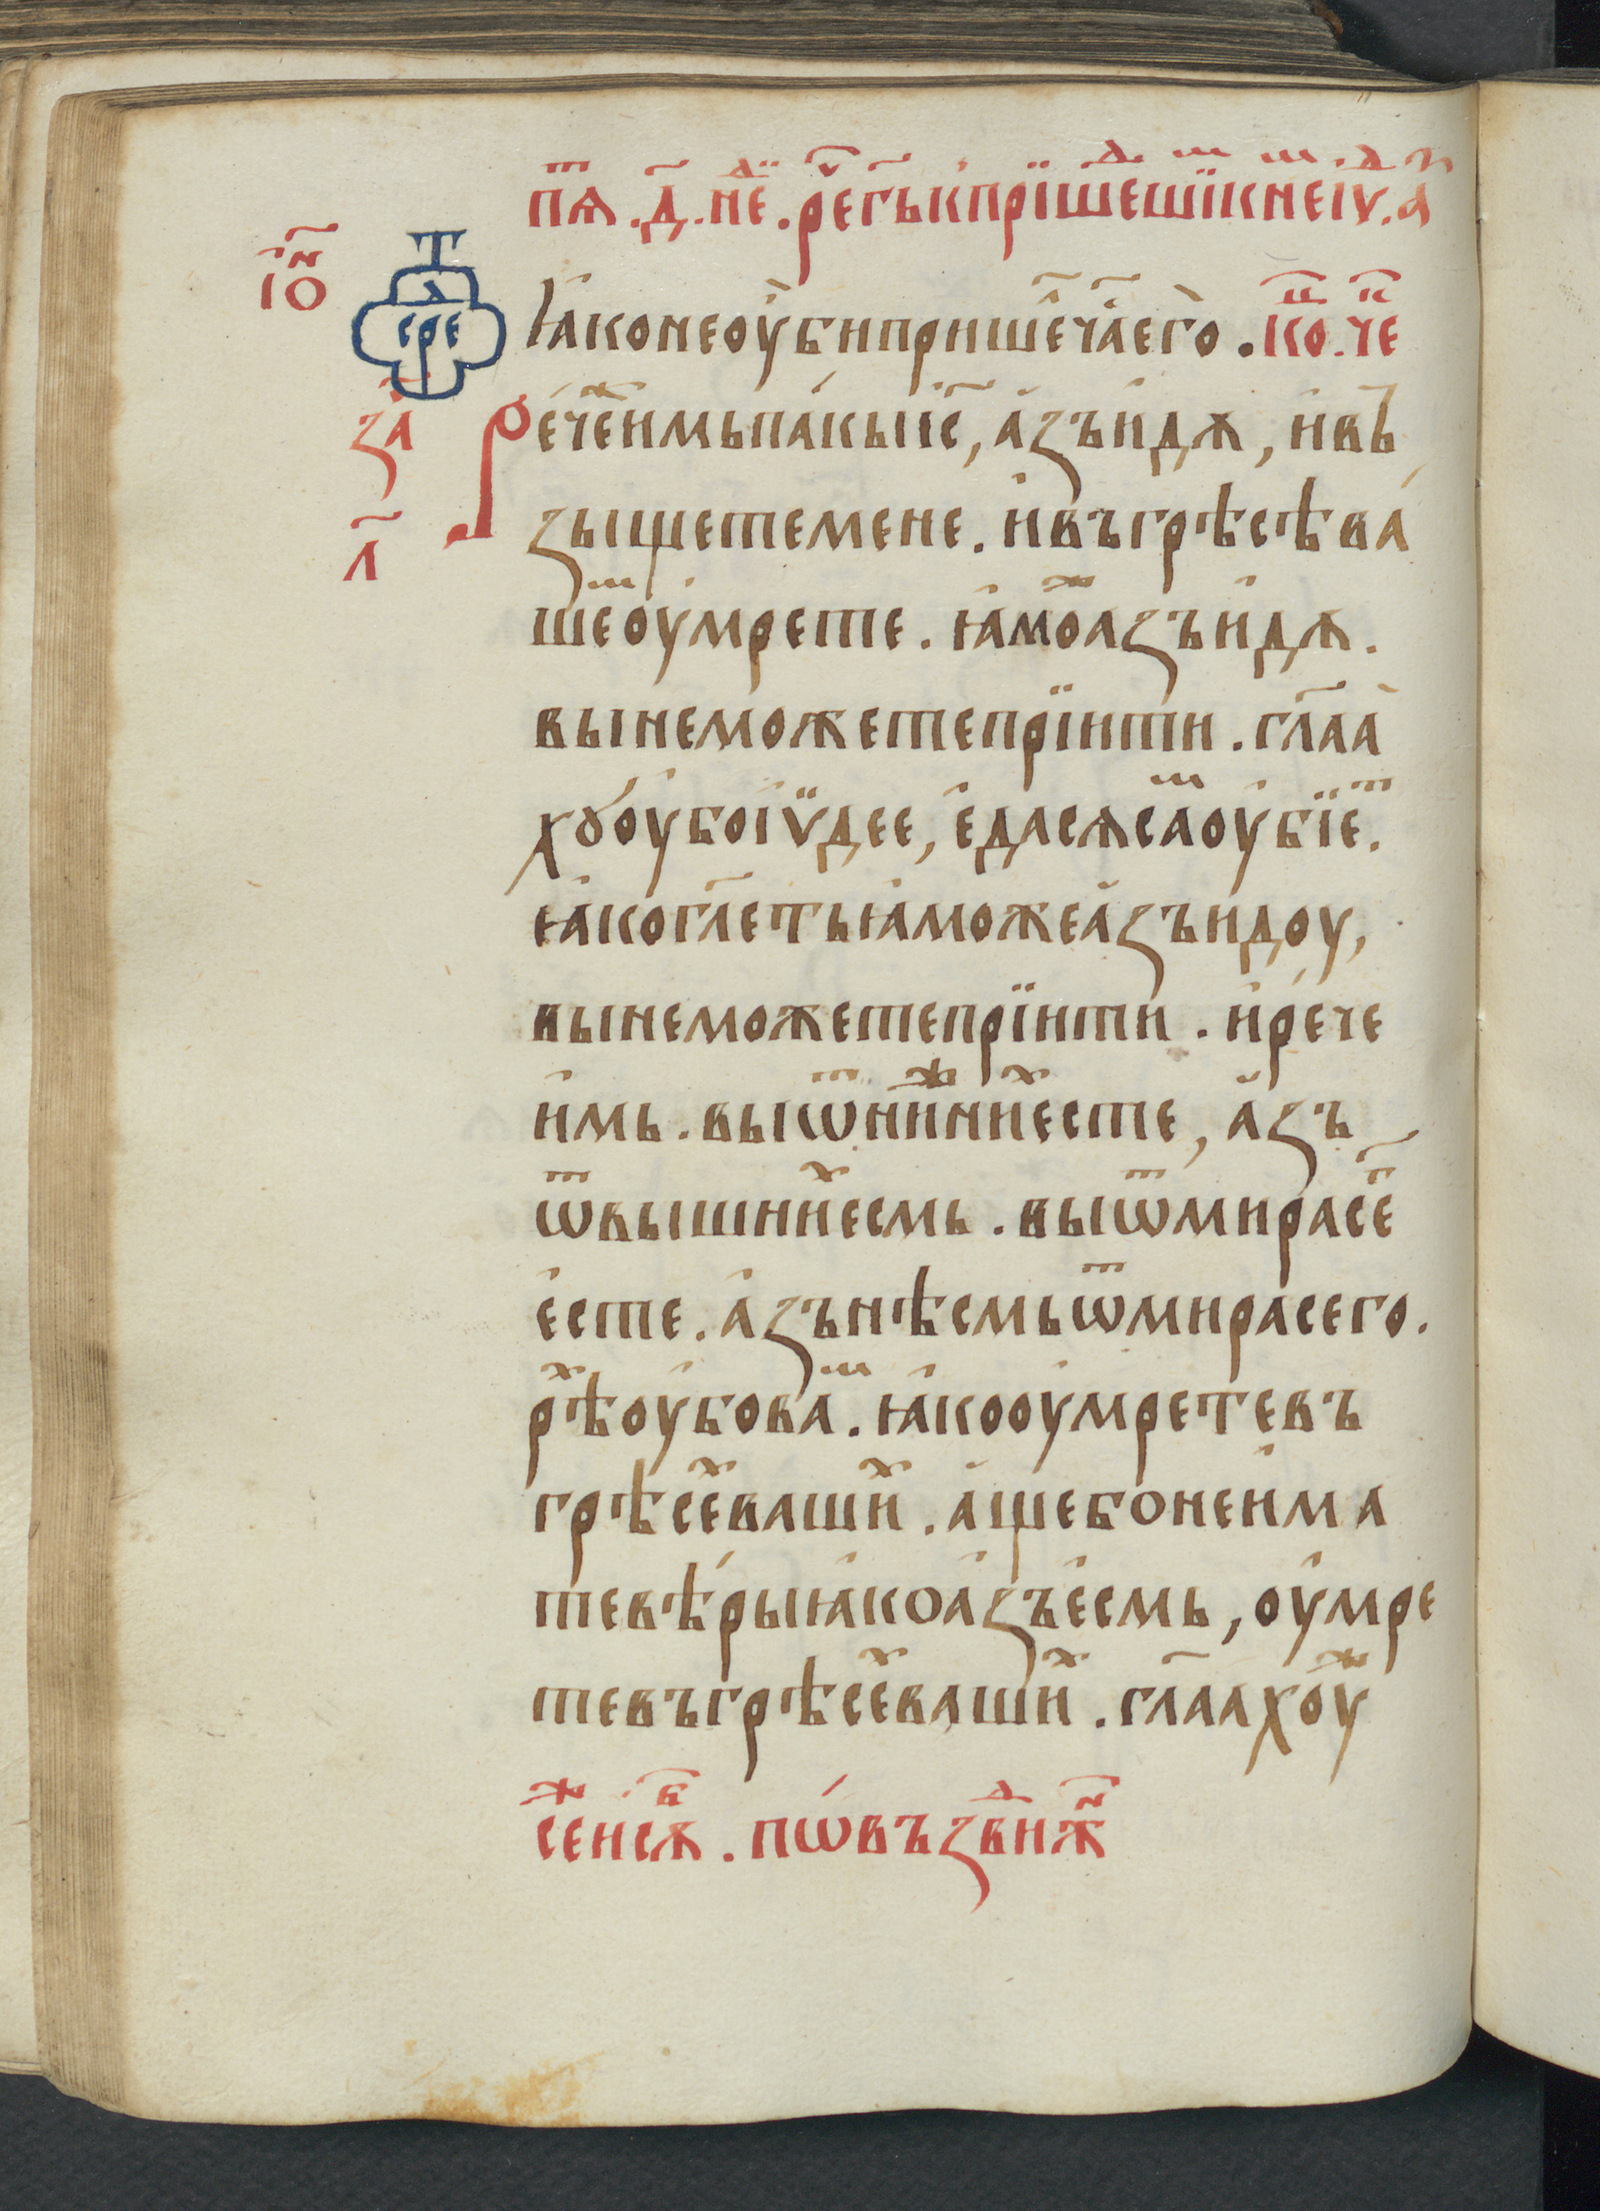 пт҃ѧ . д҃ . не҃д . рече гь к̾ прїшешїи к неіѵ . д
іѡ҃н
сре д
Ꙗ҆ко не оу҆̀ бѝ пришеⷣ ча҃ е҆го̀ . коⷩ҇ . чеⷦ҇
за҃
л҃
Ре́чⷤе и҆мь па́кы і҆с҃, а҆зъ и҆дѫ, и҆ въ
зыщете мене . и҆ въ грѣсѣ ва́
шеⷨ оу҆мрете . ꙗ҆моⷤ азъ и҆дѫ .
вы не можете прїити . гл҃аа̀
хꙋ оу҆бо і҆ѵ̈дее, е҆да сѧ саⷨ оу҆бїеⷮ .
ꙗ҆ко гл҃еть ꙗ҆може а҆зъ идоу,
вы не можете прїити . и҆ ре́че
и҆мь . вы ѿ ни́жниⷯ е҆сте, а҆зъ
ѿ вышниⷯ есмь . вы ѿ мира сеⷢ҇
е҆сте . а҆зъ нѣсмь ѿ мира сего .
рѣⷯ оу҆бо ваⷨ . ꙗ҆ко оумрете въ
грѣсеⷯ вашиⷯ . а҆ще бо не и҆ма
те вѣ́ры ꙗ҆ко а҆зъ е҆смь, оу҆мре
те въ грѣсеⷯ вашиⷯ . гл҃аахоуⷤ
сеⷤ и сѫⷠ . пѡ́ въздвиⷤⷩ